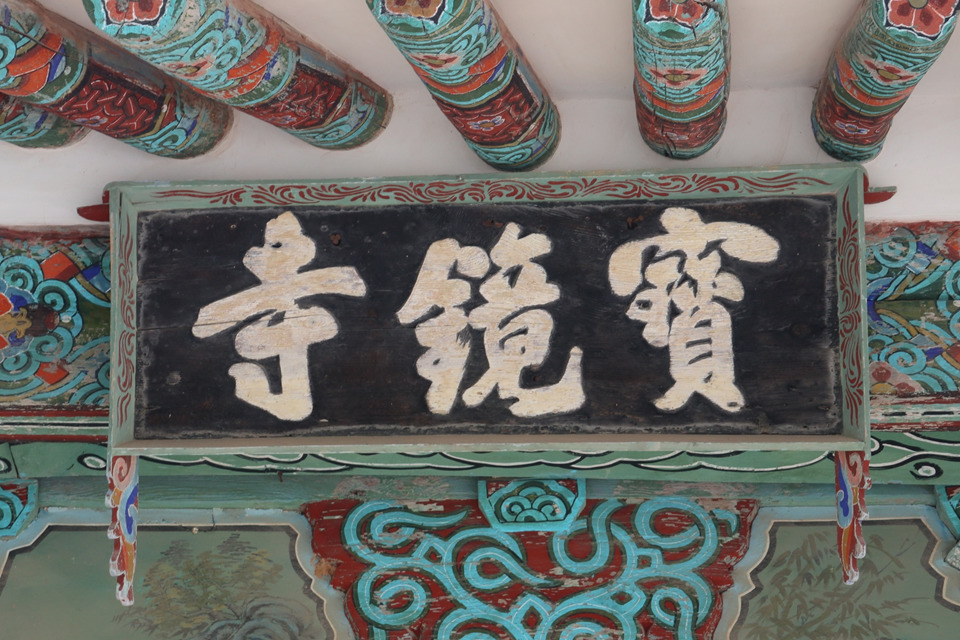 寶鏡寺